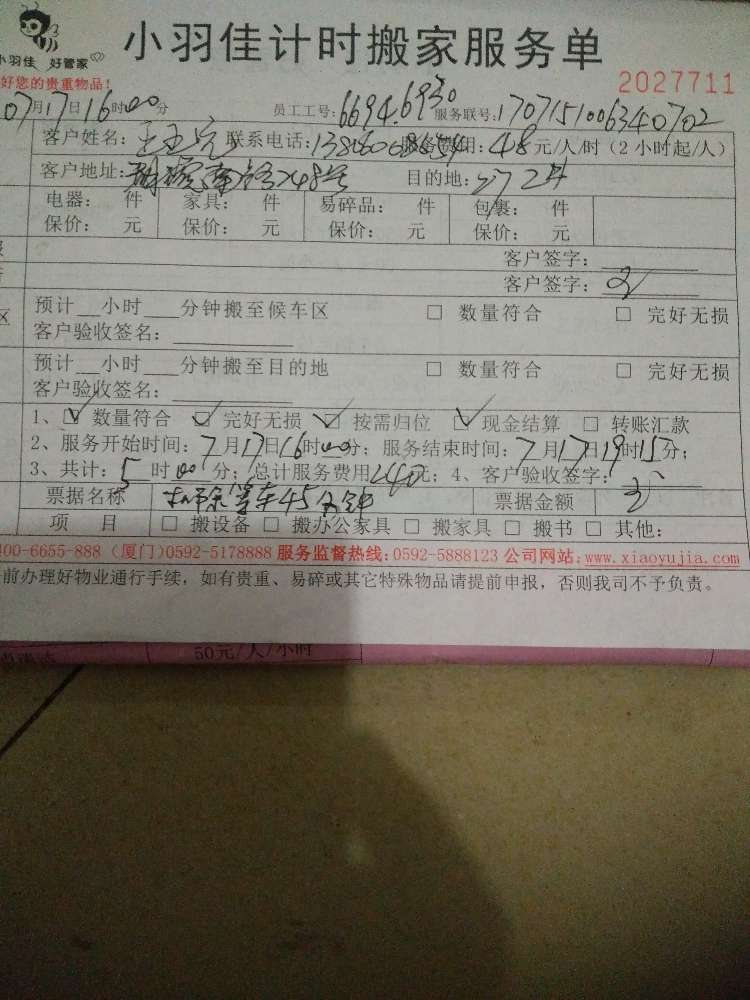 小羽佳计时搬家服务单
小羽佳 好管家
好您的贵重物品!
2027711
07月17日16时00分 员工工号:6694.6930 服务联号:1707151006340702
客户姓名: 联系电话: 费用:48元/人/时(2小时起/人)
客户地址: 南路248号 目的地:
电器: 件 家具: 件 易碎品: 件 包裹: 件
保价: 元 保价: 元 保价: 元 保价: 元
客户签字:
客户签字:
区 预计__小时___分钟搬至候车区 □ 数量符合 □ 完好无损
客户验收签名:
预计__小时___分钟搬至目的地 □ 数量符合 □ 完好无损
客户验收签名:
1、☑ 数量符合 ☑ 完好无损 ☑ 按需归位 ☑ 现金结算 □ 转账汇款
2、服务开始时间:7月17日16时00分;服务结束时间:7月17日19时15分;
3、共计:5时00分;总计服务费用240元;4、客户验收签字:
票据名称 扣除等车45分钟 票据金额
项 目 □ 搬设备 □ 搬办公家具 □ 搬家具 □ 搬书 □ 其他:
400-6655-888 (厦门)0592-5178888 服务监督热线:0592-5888123 公司网站:www.xiaoyujia.com
前办理好物业通行手续,如有贵重、易碎或其它特殊物品请提前申报,否则我司不予负责。
50元/人/小时